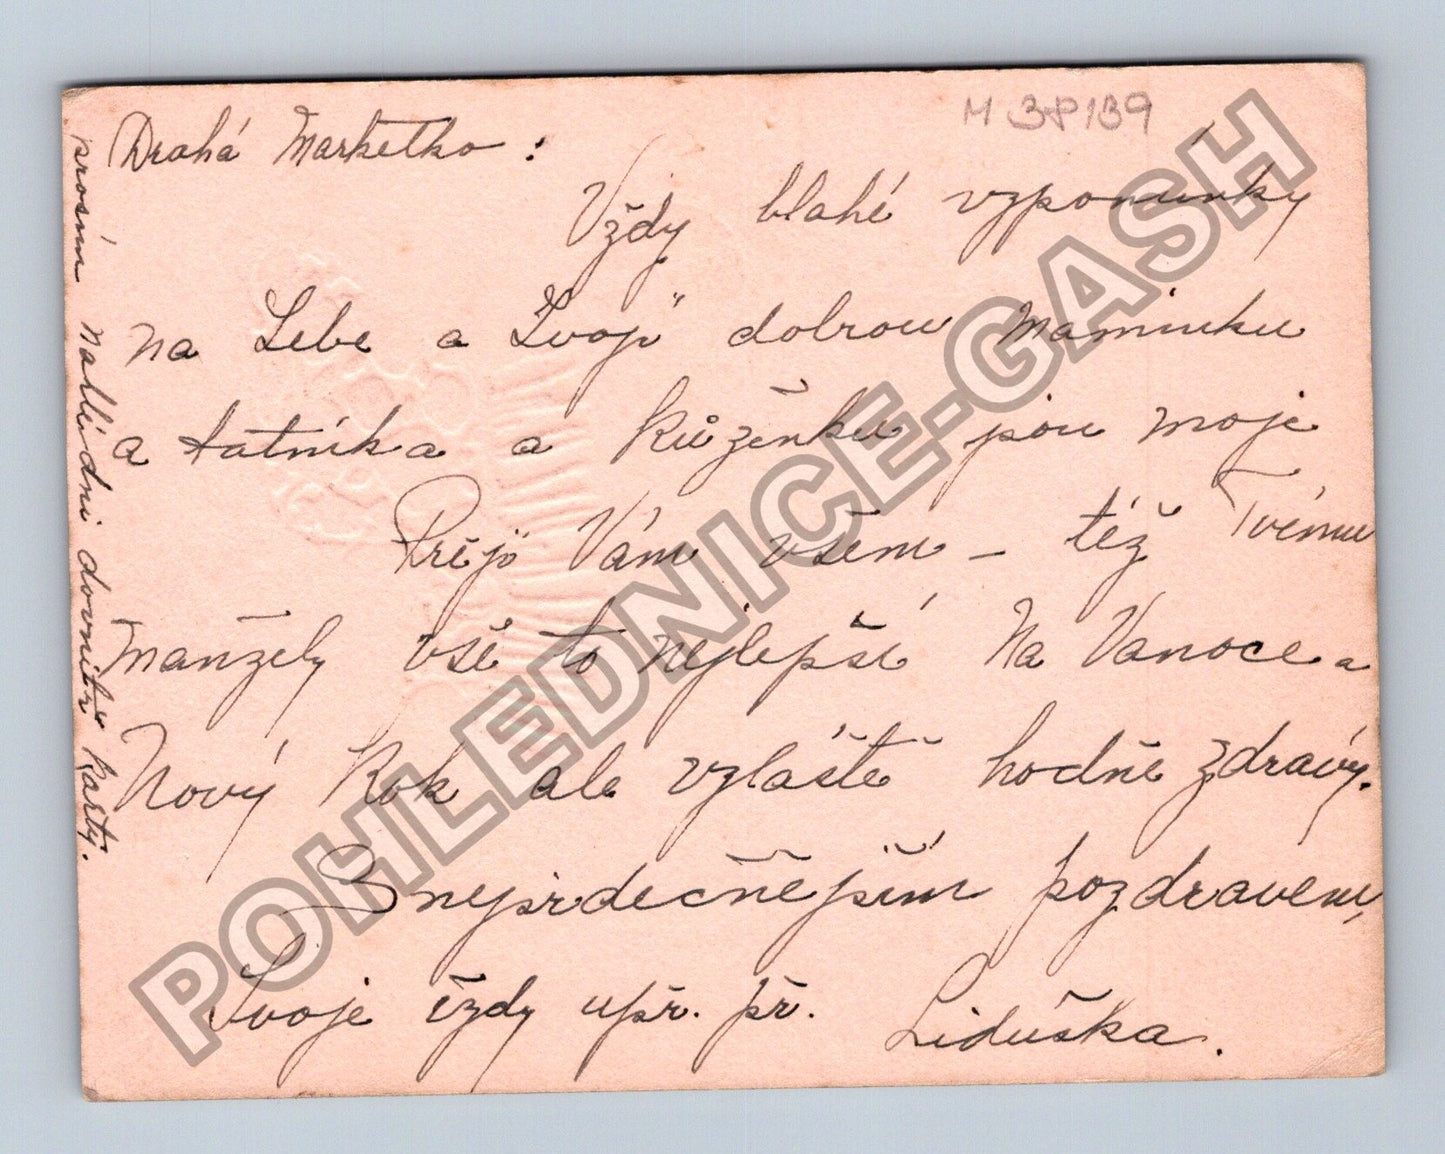 M 38139
Drahá Marketko :
Vždy blahé vzpomínky
na Tebe a Tvoji dobrou Maminku
a tatníka a Růženku jsou moje
Přeji Vám všem – též Tvému
manžely vše to nejlepší Na Vanoce a
Nový Rok ale vzláště hodně zdraví.
S nejsrdečnějším pozdravem,
Tvoje vždy upř. př. Liduška.
prosím nahlédni dovnitř karty.
POHLEDNICE-GASH